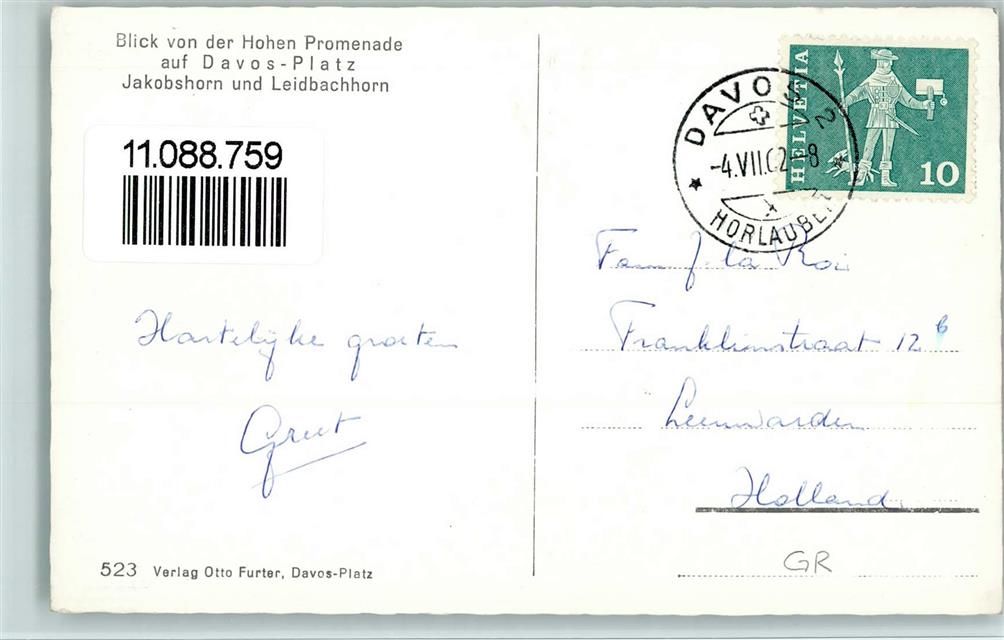 Blick von der Hohen Promenade
auf Davos-Platz
Jakobshorn und Leidbachhorn
11.088.759
Hartelijke groeten
Greet
523 Verlag Otto Furter, Davos-Platz
HELVETIA
10
DAVOS 2
-4.VII.62-8
HORLAUBEN
Fam J. la Roi
Franklinstraat 12 b
Leeuwarden
Holland
GR